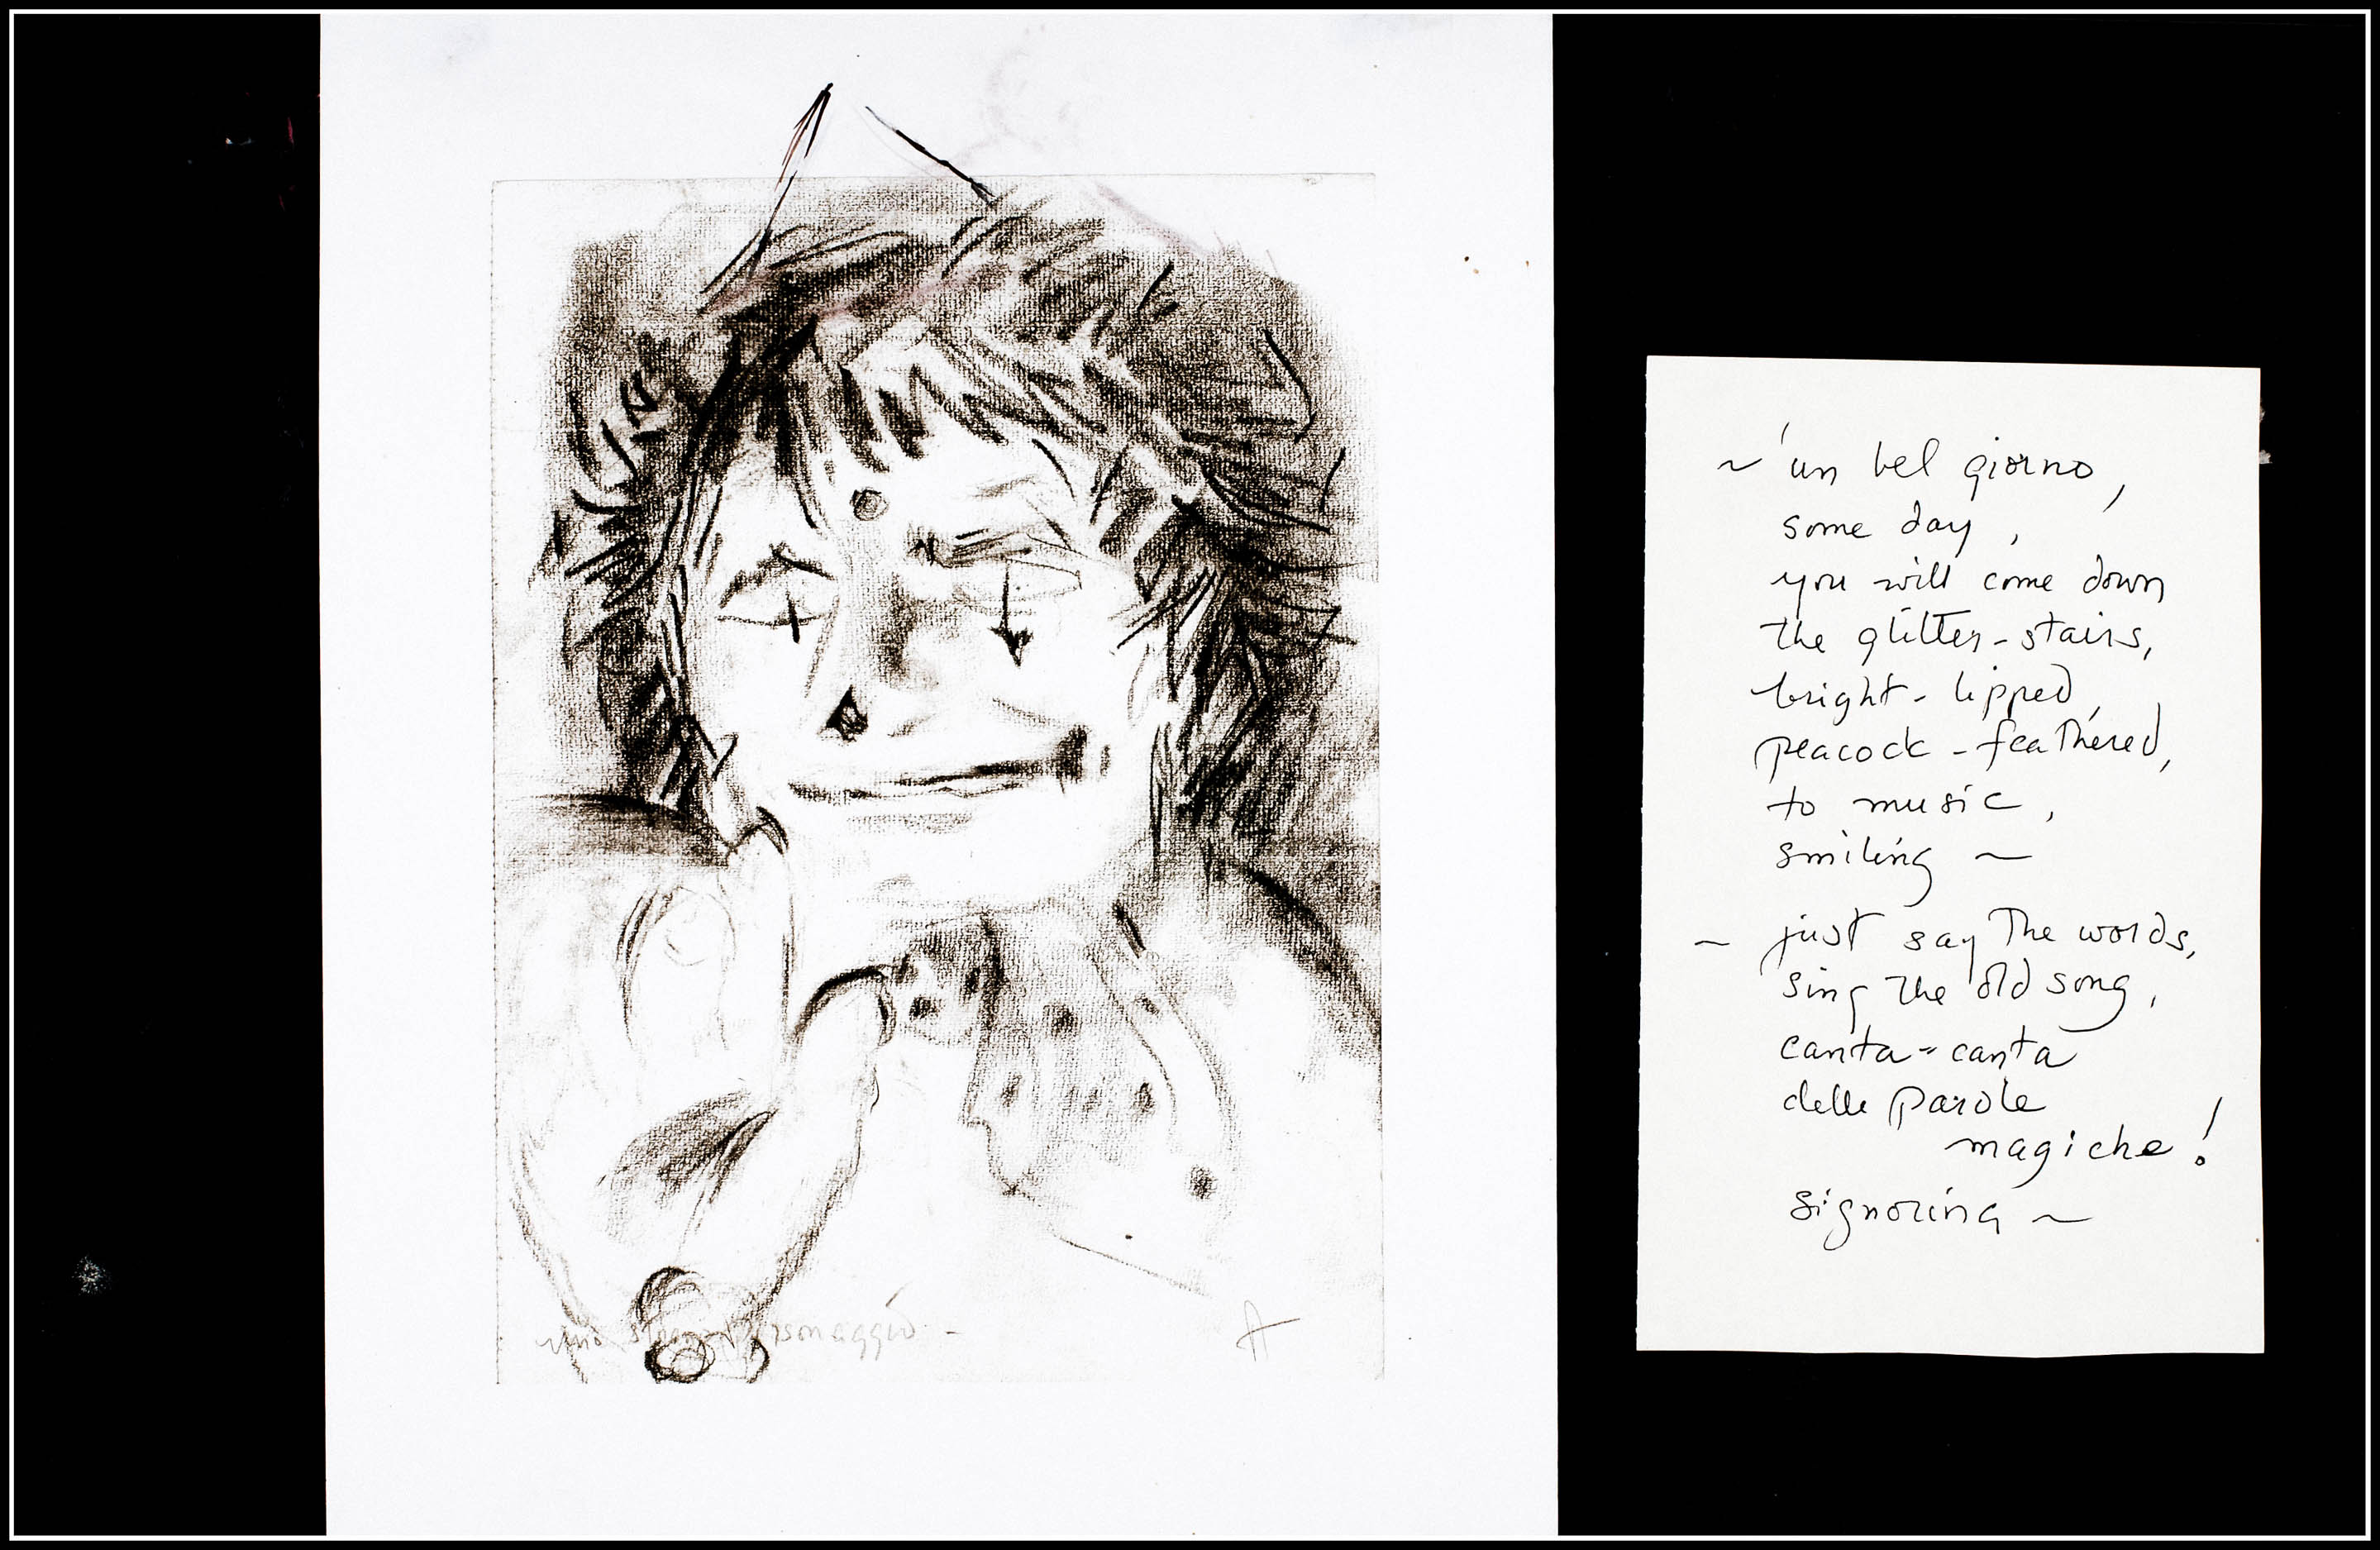 ~ 'un bel giorno,
some day,
you will come down
the glitter-stairs,
bright-lipped,
peacock-feathered,
to music,
smiling ~
~ just say the words,
sing the old song,
canta-canta
delle parole
magiche!
signorina ~
uno personaggio -
A